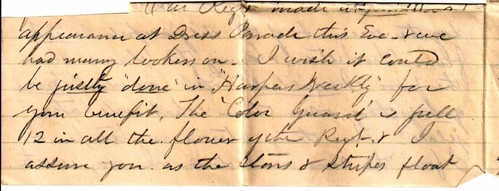 Our Regt made a
appearance at Dress Parade this Eve - we
had many lookers on - I wish it could
be justly 'done' in 'Harpers Weekly' for
your benefit. The 'Color Guard' is full
12 in all the flower of the Regt. & I
assure you as the stars & stripes float